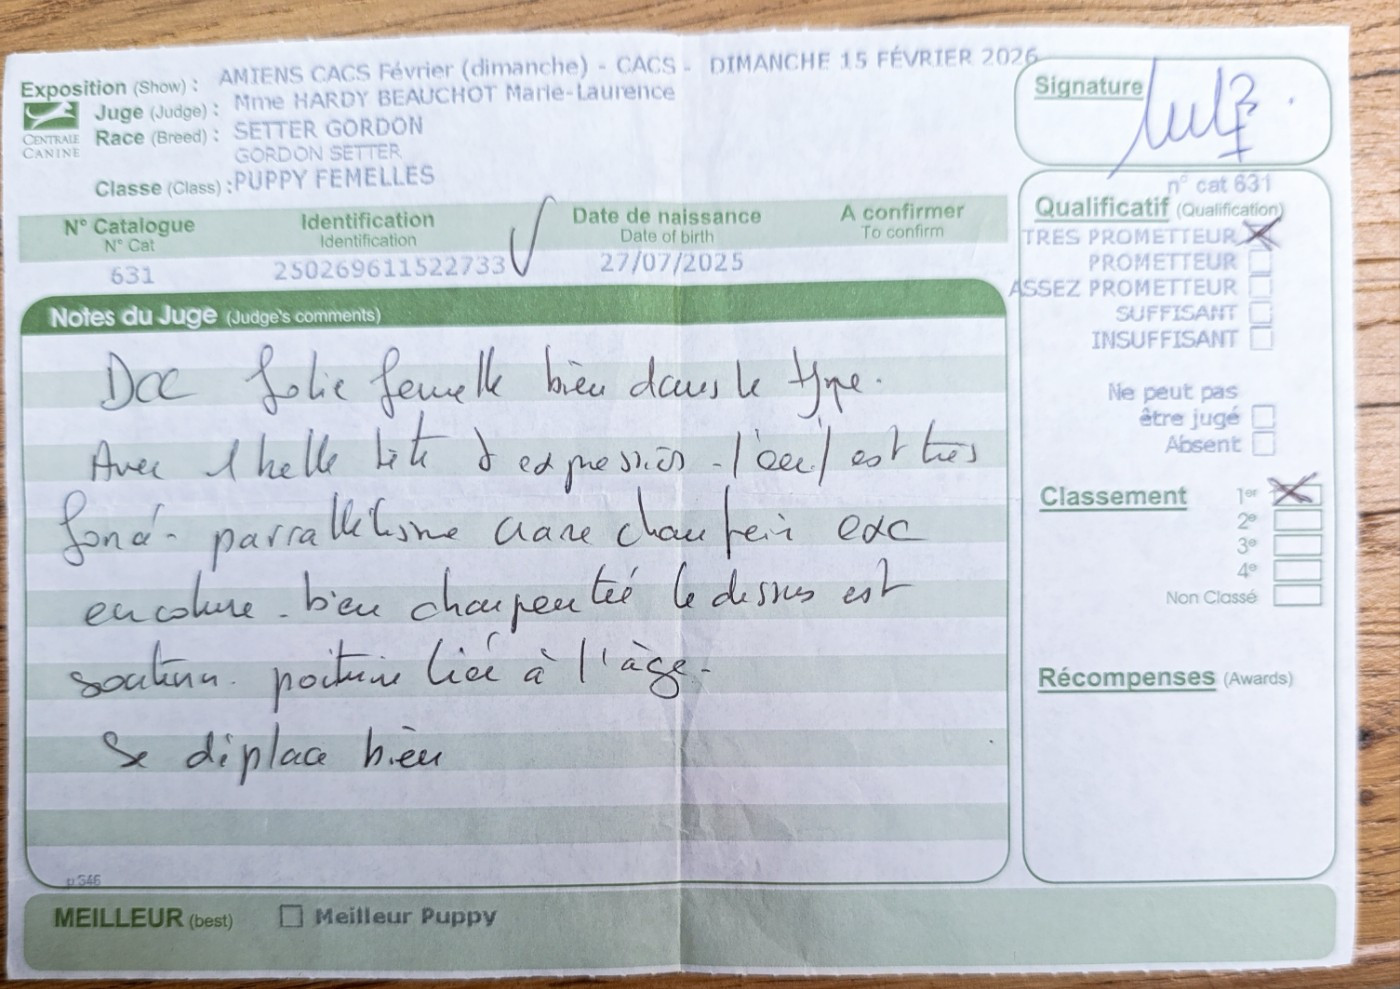 Exposition (Show) : AMIENS CACS Février (dimanche) - CACS - DIMANCHE 15 FÉVRIER 2026
CENTRALE CANINE
Juge (Judge) : Mme HARDY BEAUCHOT Marie-Laurence
Race (Breed) : SETTER GORDON
GORDON SETTER
Classe (Class) : PUPPY FEMELLES
N° Catalogue Identification Date de naissance A confirmer
N° Cat Identification Date of birth To confirm
631 250269611522733 27/07/2025
Notes du Juge (Judge's comments)
DCC Jolie femelle bien dans le type.
Avec 1 belle tête d expression - l'oeil est très
foncé - parrallélisme crane chanfrein exc
encolure - bien charpentée le dessus est
soutenu. poitrine liée à l'âge -
Se déplace bien
p.346
MEILLEUR (best) Meilleur Puppy
Signature
n° cat 631
Qualificatif (Qualification)
TRES PROMETTEUR
PROMETTEUR
ASSEZ PROMETTEUR
SUFFISANT
INSUFFISANT
Ne peut pas
être jugé
Absent
Classement 1er
2e
3e
4e
Non Classé
Récompenses (Awards)